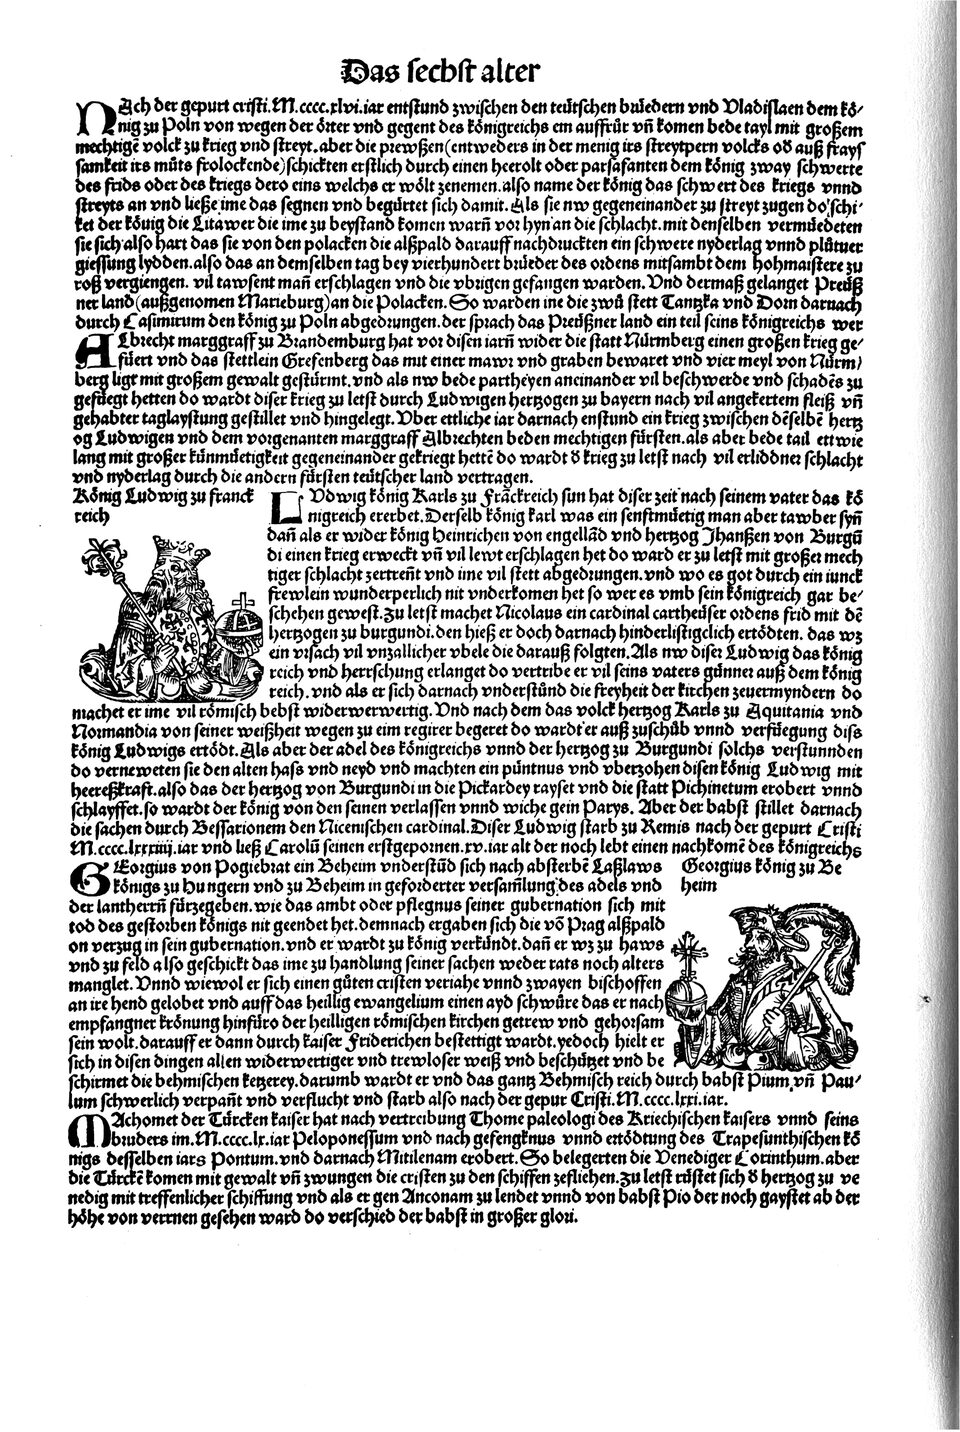 Das sechst alter
NAch der gepurt cristi.M.cccc.xlvi.iar entstund zwischen den teütschen brüedern vnd Vladislaen dem kö-
nig zu Poln von wegen der örter vnd gegent des königreichs ein auffrür vñ komen bede tayl mit großem
mechtigē volck zu krieg vnd streyt.aber die prewßen(entweders in der menig irs streytpern volcks oď auß frays
samkeit irs můts frolockende)schickten erstlich durch einen heerolt oder parsafanten dem könig zway schwerte
des frids oder des kriegs dero eins welchs er wölt zenemen.also name der könig das schwert des kriegs vnnd
streyts an vnd ließe ime das segnen vnd begürtet sich damit.Als sie nw gegeneinander zu streyt zugen do schi-
ket der könig die Litawer die ime zu beystand komen warñ vor hyn an die schlacht.mit denselben vermüedeten
sie sich also hart das sie von den polacken die alßpald darauff nachdruckten ein schwere nyderlag vnnd plůtuer
giessung lydden.also das an demselben tag bey vierhundert brüeder des ordens mitsambt dem hohmaistere zu
roß vergiengen. vil tawsent mañ erschlagen vnd die vbrigen gefangen warden.Vnd dermaß gelanget Preüß
ner land(außgenomen Marieburg)an die Polacken.So warden ine die zwů stett Tantzka vnd Dorn darnach
durch Casimirum den könig zu Poln abgedrungen.der sprach das Preüßner land ein teil seins königreichs wer
ALbrecht marggraff zu Brandemburg hat vor disen iarñ wider die statt Nürmberg einen großen krieg ge-
füert vnd das stettlein Grefenberg das mit einer mawr vnd graben bewaret vnd vier meyl von Nürm/
berg ligt mit großem gewalt gestürmt.vnd als nw bede partheyen aneinander vil beschwerde vnd schadēs zu
gefüegt hetten do wardt diser krieg zu letst durch Ludwigen hertzogen zu bayern nach vil angekertem fleiß vñ
gehabter taglaystung gestillet vnd hingelegt.Vber ettliche iar darnach enstund ein krieg zwischen dēselbē hertz
og Ludwigen vnd dem vorgenanten marggraff Albrechten beden mechtigen fürsten.als aber bede tail ettwie
lang mit großer künmüetigkeit gegeneinander gekriegt hettē do wardt ď krieg zu letst nach vil erliddner schlacht
vnd nyderlag durch die andern fürsten teütscher land vertragen.
König Ludwig zu franck
reich
LVdwig könig Karls zu Frāckreich sun hat diser zeit nach seinem vater das kö
nigreich ererbet.Derselb könig karl was ein senftmüetig man aber tawber syñ
dañ als er wider könig Heinrichen von engellād vnd hertzog Jhanßen von Burgū
di einen krieg erweckt vñ vil lewt erschlagen het do ward er zu letst mit großer mech
tiger schlacht zertreñt vnd ime vil stett abgedrungen.vnd wo es got durch ein iunck
frewlein wunderperlich nit vnderkomen het so wer es vmb sein königreich gar be-
schehen gewest.Zu letst machet Nicolaus ein cardinal cartheüser ordens frid mit dē
hertzogen zu burgundi.den hieß er doch darnach hinderlistigclich ertödten. das wz
ein vrsach vil vnzallicher vbele die darauß folgten.Als nw diser Ludwig das könig
reich vnd herrschung erlanget do vertribe er vil seins vaters günner auß dem könig
reich.vnd als er sich darnach vnderstůnd die freyheit der kirchen zeuermyndern do
machet er ime vil römisch bebst widerwerwertig.Vnd nach dem das volck hertzog Karls zu Aquitania vnd
Normandia von seiner weißheit wegen zu eim regirer begeret do wardt er auß zuschůb vnnd verfüegung diss
könig Ludwigs ertödt.Als aber der adel des königreichs vnnd der hertzog zu Burgundi solchs verstunnden
do verneweten sie den alten hass vnd neyd vnd machten ein püntnus vnd vberzohen disen könig Ludwig mit
heereßkraft.also das der hertzog von Burgundi in die Pickardey rayset vnd die statt Pichinetum erobert vnnd
schlayffet.so wardt der könig von den seinen verlassen vnnd wiche gein Parys. Aber der babst stillet darnach
die sachen durch Bessarionem den Nicenischen cardinal.Diser Ludwig starb zu Remis nach der gepurt Cristi
M.cccc.lxxxiiij.iar vnd ließ Carolū seinen erstgepornen.xv.iar alt der noch lebt einen nachkomē des königreichs
GEorgius von Pogiebrat ein Beheim vnderstůd sich nach absterbē Laßlaws
königs zu Hungern vnd zu Beheim in geforderter versam̄lung des adels vnd
der lantherrñ fürzegeben.wie das ambt oder pflegnus seiner gubernation sich mit
tod des gestorben königs nit geendet het.demnach ergaben sich die vō Prag alßpald
on verzug in sein gubernation.vnd er wardt zu könig verkündt.dañ er wz zu haws
vnd zu feld also geschickt das ime zu handlung seiner sachen weder rats noch alters
manglet.Vnnd wiewol er sich einen gůten cristen veriahe vnnd zwayen bischoffen
an ire hend gelobet vnd auff das heillig ewangelium einen ayd schwůre das er nach
empfangner krönung hinfüro der heilligen römischen kirchen getrew vnd gehorsam
sein wolt.darauff er dann durch kaiser Friderichen bestettigt wardt.yedoch hielt er
sich in disen dingen allen widerwertiger vnd trewloser weiß vnd beschützet vnd be
schirmet die behmischen ketzerey.darumb wardt er vnd das gantz Behmisch reich durch babst Pium vñ Pau-
lum schwerlich verpañt vnd verflucht vnd starb also nach der gepur Cristi.M.cccc.lxxi.iar.
Georgius könig zu Be
heim
MAchomet der Türcken kaiser hat nach vertreibung Thome paleologi des Kriechischen kaisers vnnd seins
bruders im.M.cccc.lx.iar Peloponessum vnd nach gefengknus vnnd ertödtung des Trapesunthischen kö
nigs desselben iars Pontum.vnd darnach Mitilenam erobert.So belegerten die Venediger Corinthum.aber
die Türckē komen mit gewalt vñ zwungen die cristen zu den schiffen zeflichen.Zu letst rüstet sich ď hertzog zu ve
nedig mit treffenlicher schiffung vnd als er gen Anconam zu lendet vnnd von babst Pio der noch gaystet ab der
höhe von verrnen gesehen ward do verschied der babst in großer glori.